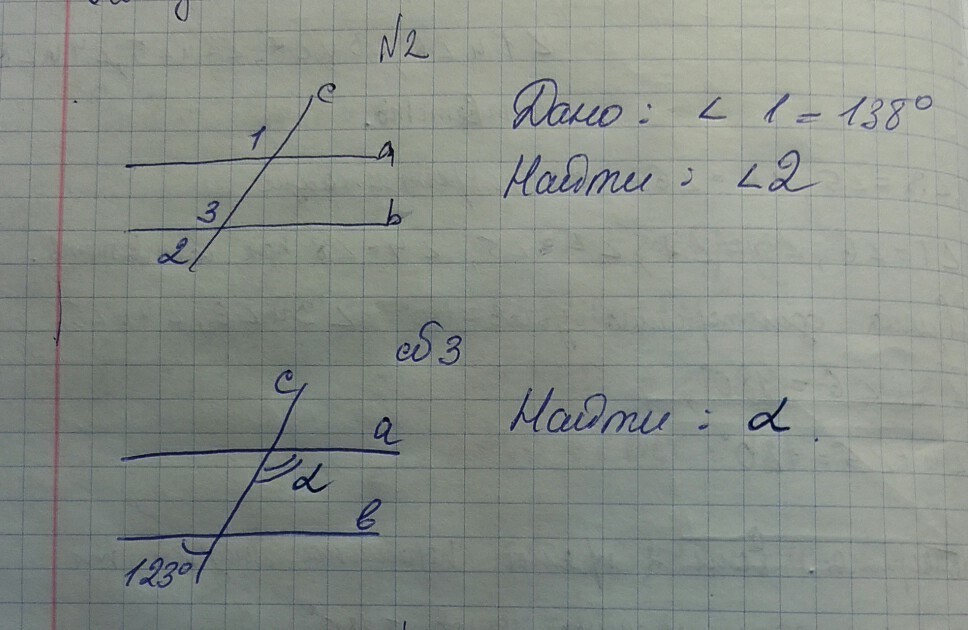 №2
c
1
a
3
b
2
Дано: < 1 = 138°
Найти: <2
3
c
a
α
в
123°
Найти: α.